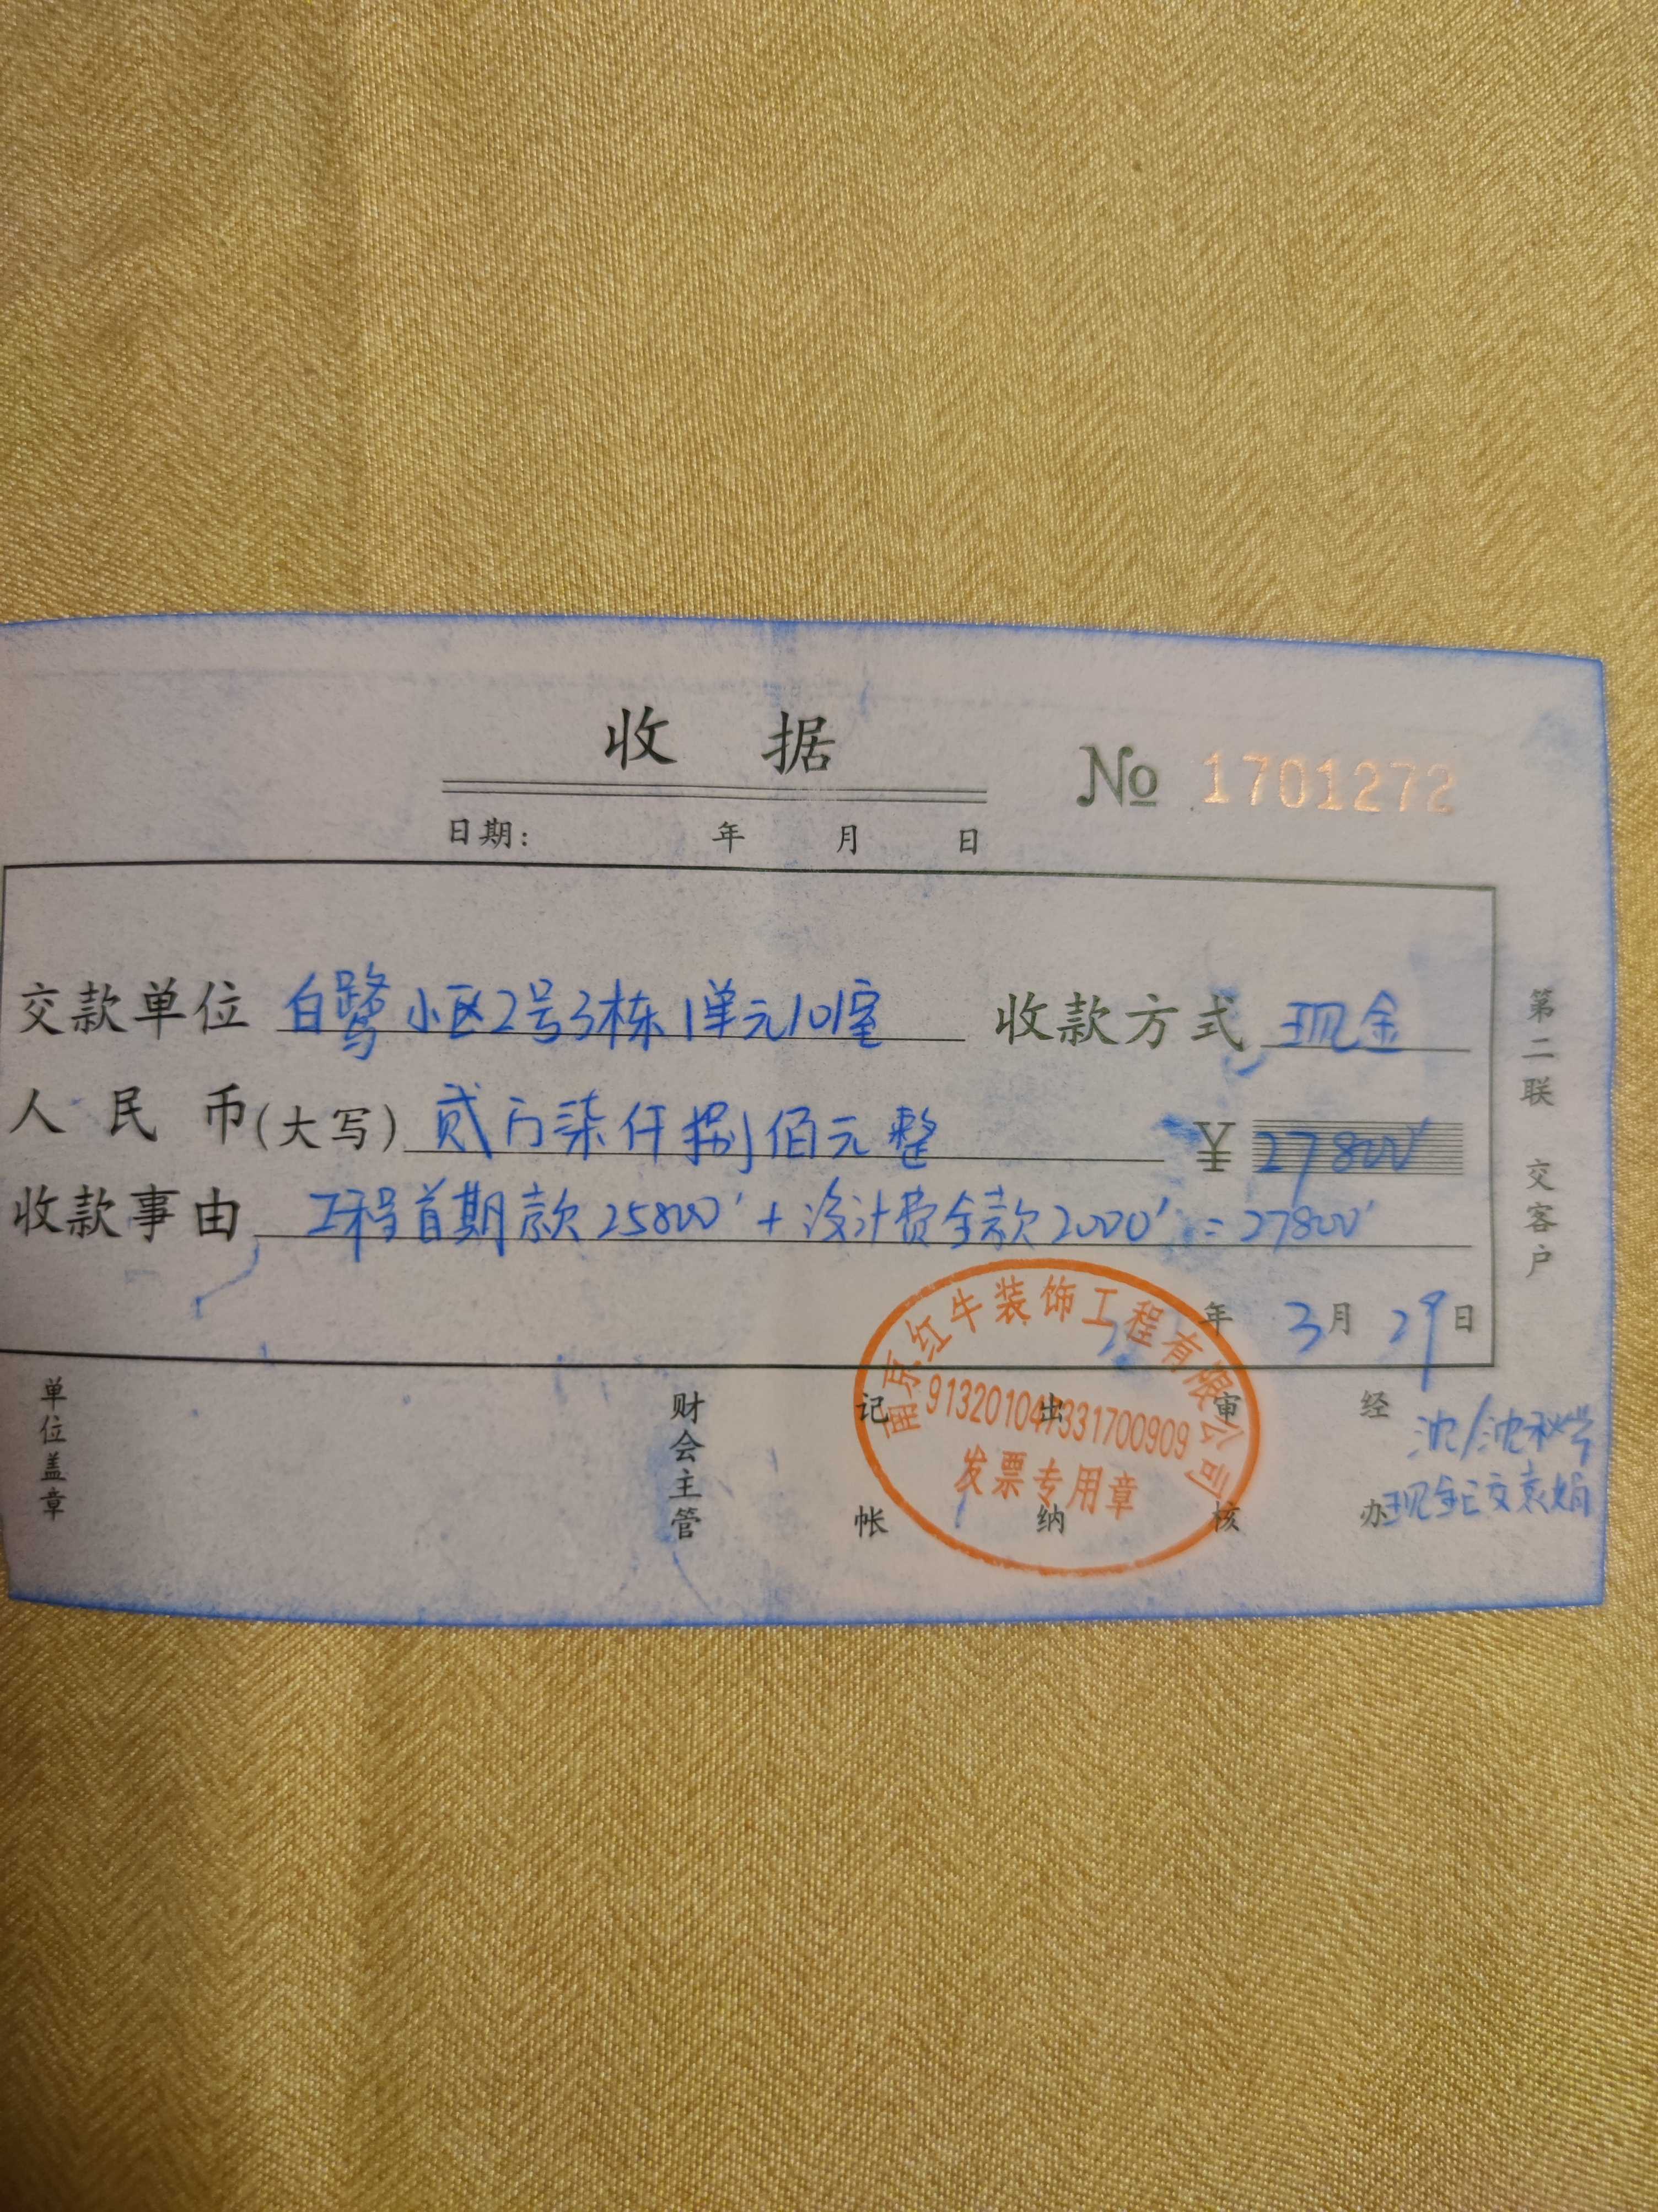 收 据
No 1701272
日期: 年 月 日
交款单位 白鹭小区2号3栋1单元101室 收款方式 现金
人民币(大写) 贰万柒仟捌佰元整 ¥ 27800
收款事由 工程首期款25800+设计费全款2000=27800
年 3月 29日
第二联 交客户
单位盖章 财会主管 记帐 出纳 审核 经办
现金已交袁娟
南京红牛装饰工程有限公司
发票专用章